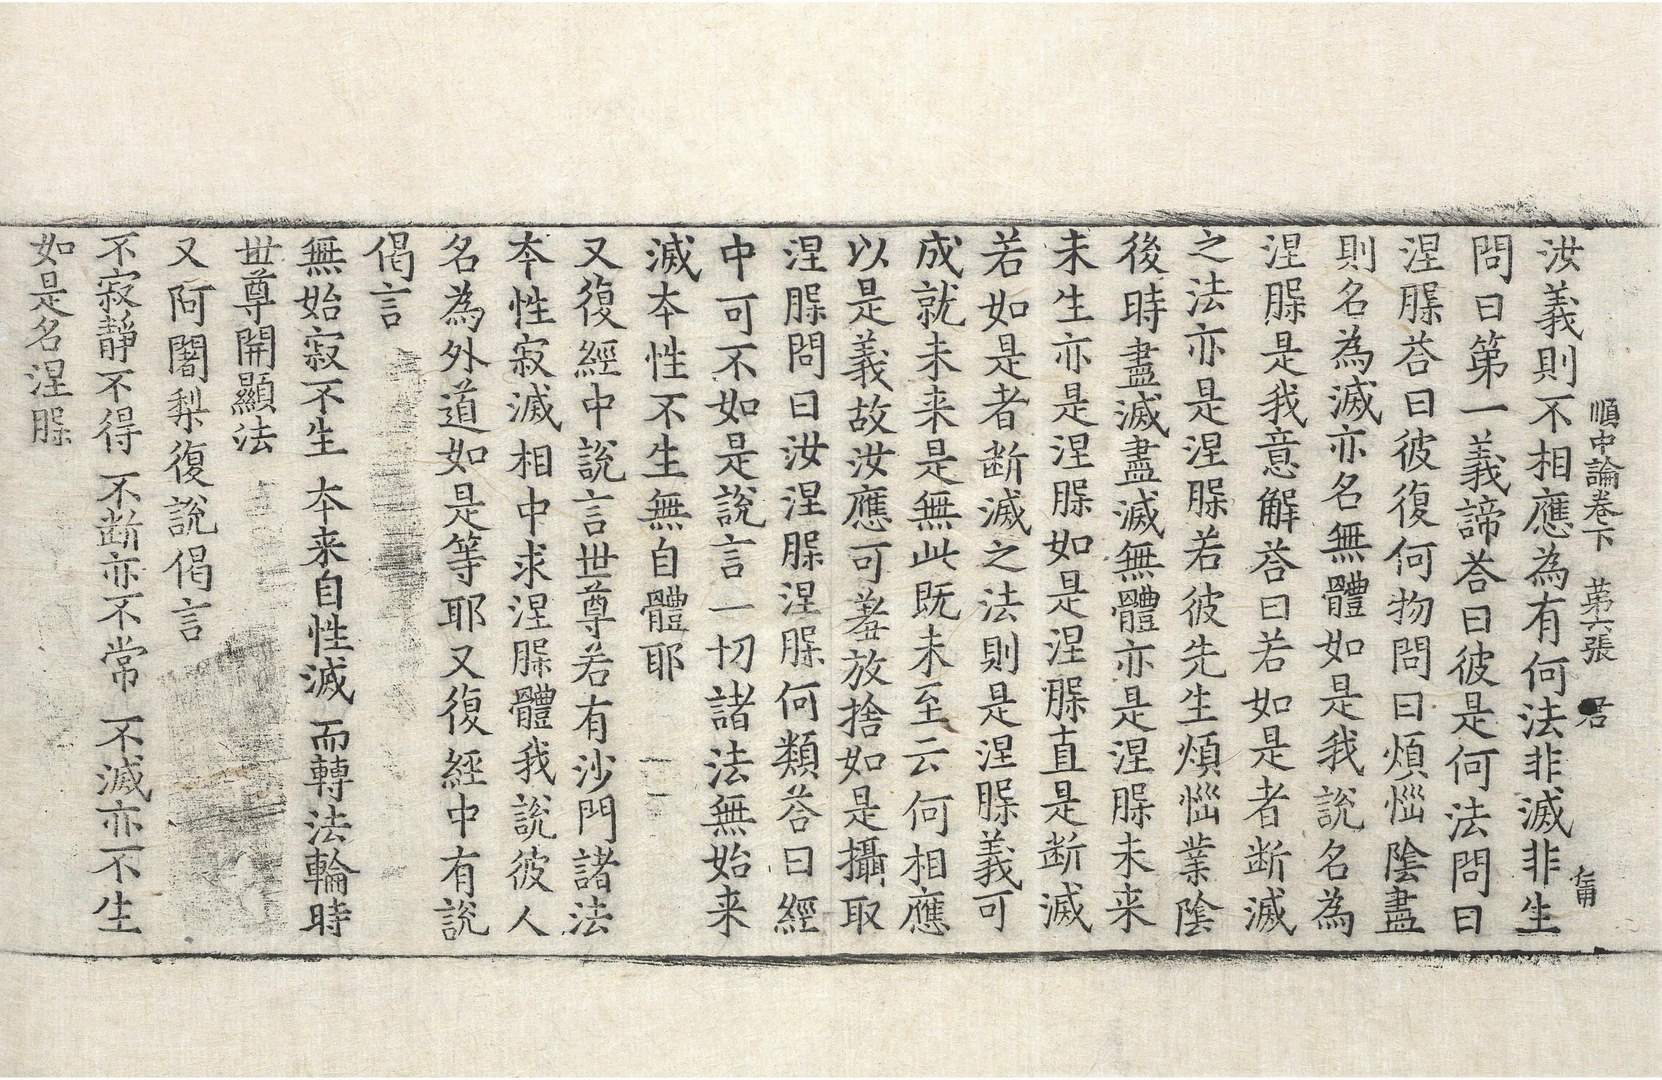 順中論卷下 第六張 君
在甫
汝義則不相應為有何法非滅非生
問曰第一義諦荅曰彼是何法問曰
涅槃荅曰彼復何物問曰煩惱陰盡
則名為滅亦名無體如是我說名為
涅槃是我意解荅曰若如是者断滅
之法亦是涅槃若彼先生煩惱業陰
後時盡滅盡滅無體亦是涅槃未来
未生亦是涅槃如是涅槃直是断滅
若如是者断滅之法則是涅槃義可
成就未来是無此既未至云何相應
以是義故汝應可羞放捨如是攝取
涅槃問曰汝涅槃涅槃何類荅曰經
中可不如是說言一切諸法無始来
滅本性不生無自體耶
又復經中說言世尊若有沙門諸法
本性寂滅相中求涅槃體我說彼人
名為外道如是等耶又復經中有說
偈言
無始寂不生 本来自性滅 而轉法輪時
世尊開顯法
又阿闍梨復說偈言
不寂靜不得 不断亦不常 不滅亦不生
如是名涅槃